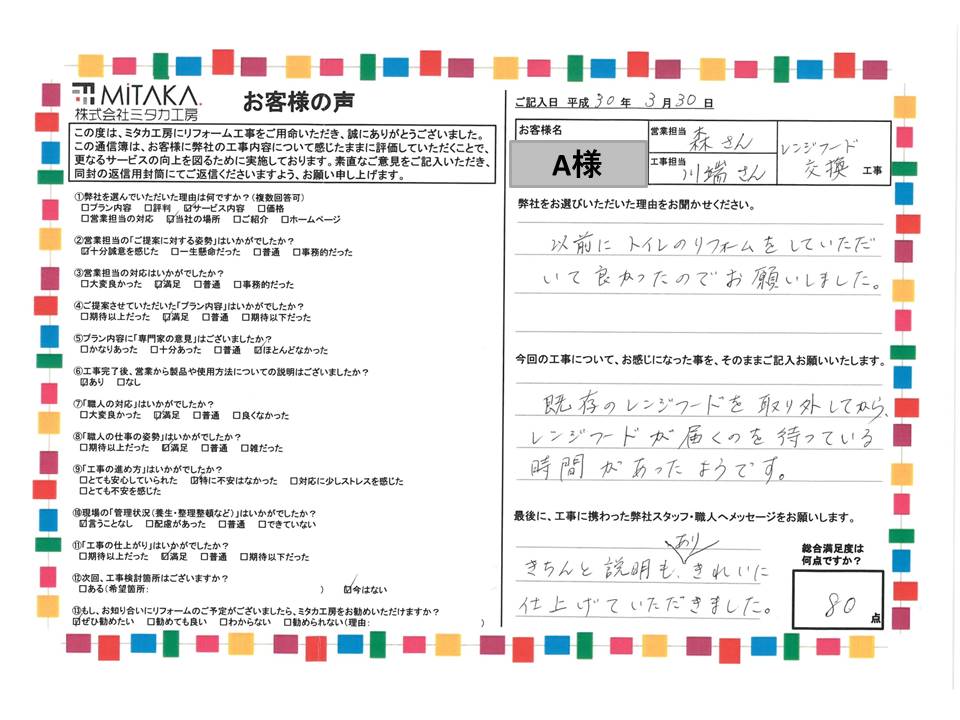 MiTAKA.
株式会社ミタカ工房
お客様の声
この度は、ミタカ工房にリフォーム工事をご用命いただき、誠にありがとうございました。
この通信簿は、お客様に弊社の工事内容について感じたままに評価していただくことで、
更なるサービスの向上を図るために実施しております。素直なご意見をご記入いただき、
同封の返信用封筒にてご返信くださいますよう、お願い申し上げます。
①弊社を選んでいただいた理由は何ですか?(複数回答可)
□プラン内容 □評判 ☑サービス内容 □価格
□営業担当の対応 ☑当社の場所 □ご紹介 □ホームページ
②営業担当の「ご提案に対する姿勢」はいかがでしたか?
☑十分誠意を感じた □一生懸命だった □普通 □事務的だった
③営業担当の対応はいかがでしたか?
□大変良かった ☑満足 □普通 □事務的だった
④ご提案させていただいた「プラン内容」はいかがでしたか?
□期待以上だった ☑満足 □普通 □期待以下だった
⑤プラン内容に「専門家の意見」はございましたか?
□かなりあった □十分あった □普通 ☑ほとんどなかった
⑥工事完了後、営業から製品や使用方法についての説明はございましたか?
☑あり □なし
⑦「職人の対応」はいかがでしたか?
□大変良かった ☑満足 □普通 □良くなかった
⑧「職人の仕事の姿勢」はいかがでしたか?
□期待以上だった ☑満足 □普通 □雑だった
⑨「工事の進め方」はいかがでしたか?
□とても安心していられた ☑特に不安はなかった □対応に少しストレスを感じた
□とても不安を感じた
⑩現場の「管理状況(養生・整理整頓など)」はいかがでしたか?
☑言うことなし □配慮があった □普通 □できていない
⑪「工事の仕上がり」はいかがでしたか?
□期待以上だった ☑満足 □普通 □期待以下だった
⑫次回、工事検討箇所はございますか?
□ある(希望箇所: ) ☑今はない
⑬もし、お知り合いにリフォームのご予定がございましたら、ミタカ工房をお勧めいただけますか?
☑ぜひ勧めたい □勧めても良い □わからない □勧められない(理由: )
ご記入日 平成 30 年 3 月 30 日
お客様名
A様
営業担当 森さん
工事担当 川端さん
レンジフード
交換 工事
弊社をお選びいただいた理由をお聞かせください。
以前にトイレのリフォームをしていただ
いて良かったのでお願いしました。
今回の工事について、お感じになった事を、そのままご記入お願いいたします。
既存のレンジフードを取り外してから、
レンジフードが届くのを待っている
時間があったようです。
最後に、工事に携わった弊社スタッフ・職人へメッセージをお願いします。
あり
きちんと説明も、きれいに
仕上げていただきました。
総合満足度は
何点ですか?
80 点